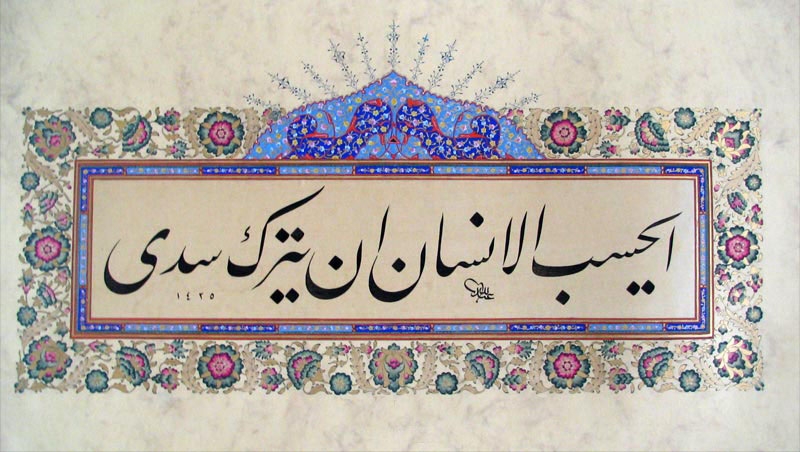 ايحسب الانسان ان يترك سدى
١٤٢٥